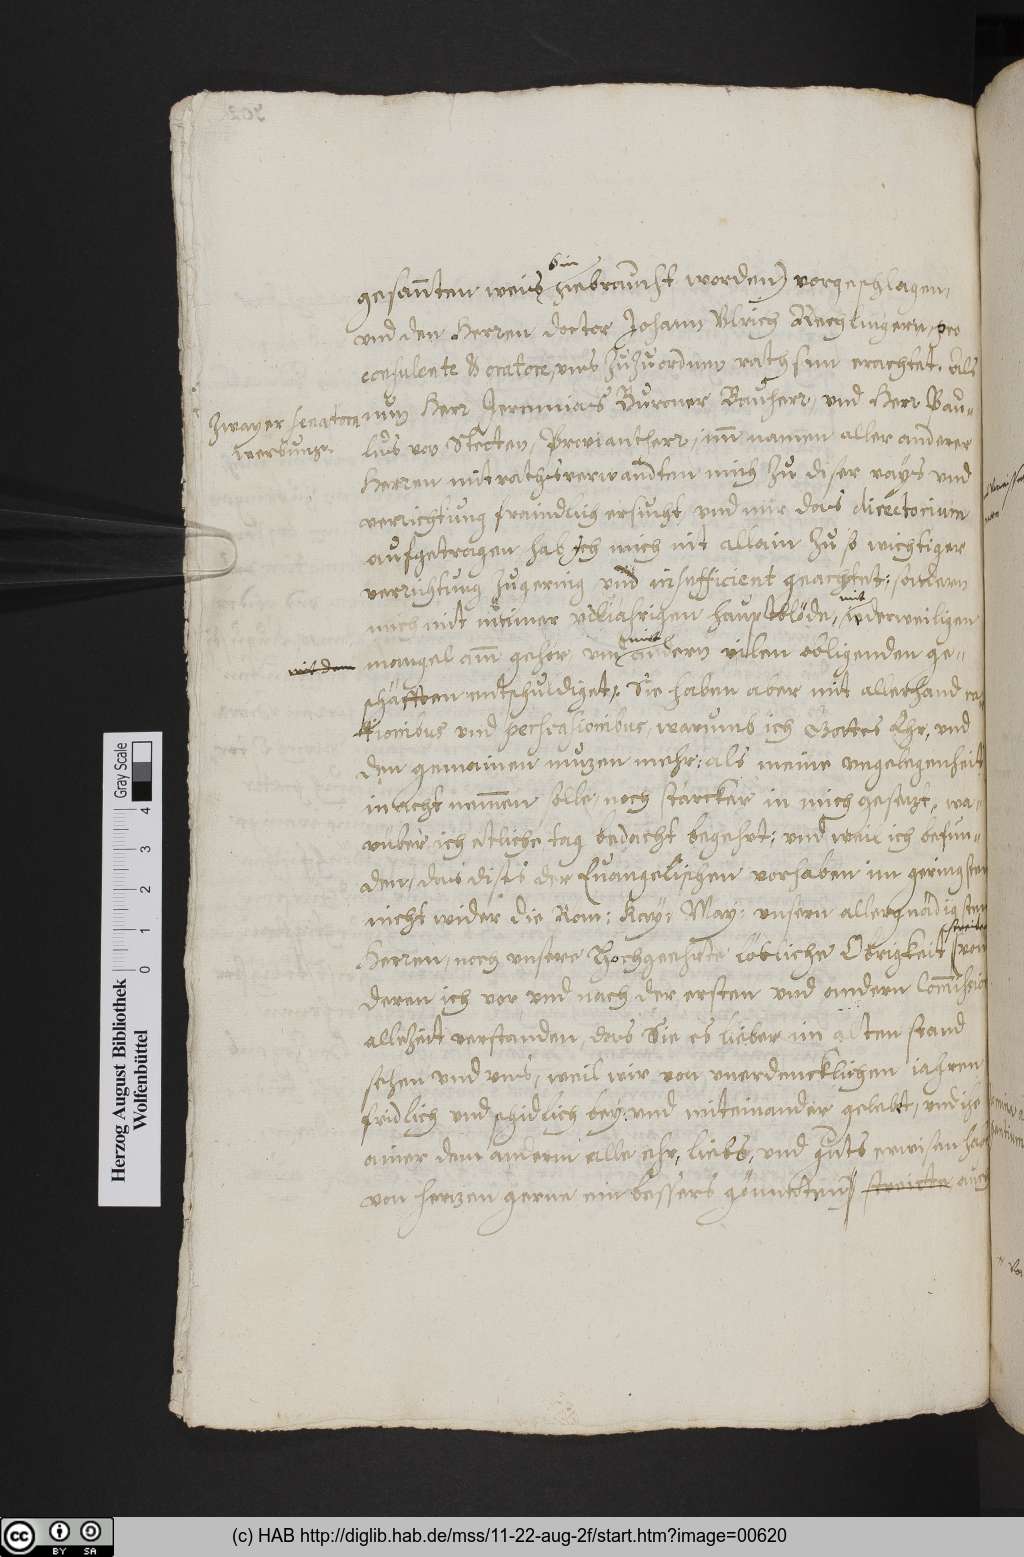 gesannten weis
bin
gebraucht worden) vorgeschlagen,
und den Herren doctor Johann Ulrich Rechlingern, pro
consulente & oratore, uns zuzuordnen rathsam erachtet. Als
nun Herr Jeremias Buroner Bauherr, und Herr Pau-
Zwayer senatorn
werbung.
lus von Stetten, Proviantherr, im namen aller anderer
Herren mitrathsverwandten mich zu diser rays und
verrichtung fraindlich ersucht und mir das directorium
aufgetragen, hab Ich mich nit allain zu so wichtiger
verrichtung zugering und insufficient geachtet; sondern
mich mit meiner vilijahrigen hauptblöde,
mit
mit dem
mangel am gehör und
mit
andern vilen obligenden ge-
schäfften entschuldiget. Sie haben aber mit allerhand ra-
tionibus und persuasionibus, warumb ich Gottes Ehr, und
den gemainen nuzen mehr, als meine ungelegenheit
in acht nemmen solle, noch stärcker in mich gesezt, wa-
rüber ich etliche tag bedacht begehrt; und weil ich befun-
den, das dises der Euangelischen vorhaben im geringsten
nicht wider die Röm: Kay: May: unsern allergnädigsten
Herren, noch unsere Hochgeehrte löbliche Obrigkeit
streitte
(von
deren ich vor und nach der ersten und andern Commission
allezeit verstanden, das Sie es lieber im alten stand
sehen und uns, weil wir von unerdencklichen jahren
fridlich und schidlich bey: und miteinander gelebt, und ihe
ainer dem andern alle ehr, liebs, und guts erwisen hat
von herzen gerne ein bessers gönneten) streitte auch
Herzog August Bibliothek
Wolfenbüttel
0 1 2 3 4
Gray Scale
cc BY SA
(c) HAB http://diglib.hab.de/mss/11-22-aug-2f/start.htm?image=00620